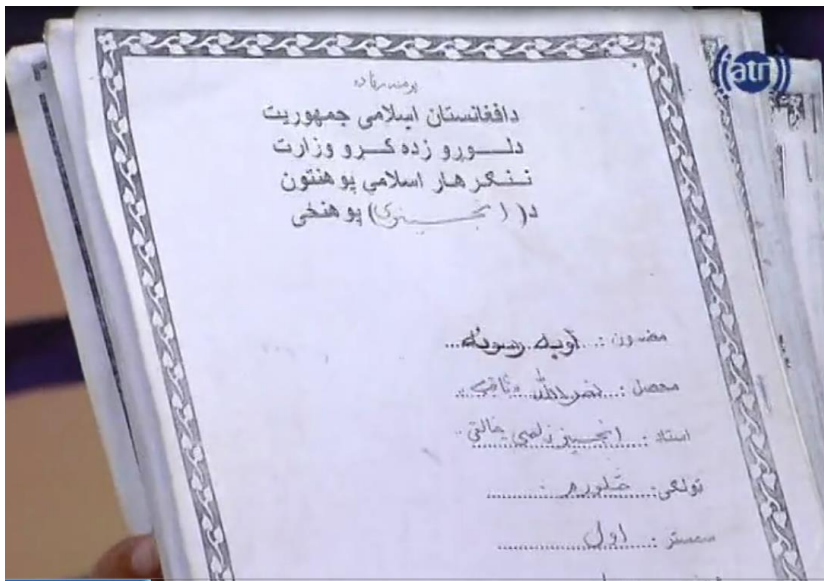 دافغانستان اسلامی جمهوریت
دلــوړو زده کــړو وزارت
ننگرهار اسلامي پوهنتون
د( انجینري ) پوهنځی
atn
مضمون : اوبه رسونه
محصل : نصرالله ثاقب
استاد : انجینر زلمی
ټولگی: څلورم
سمستر : اول